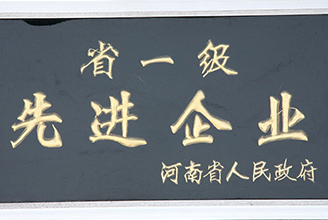 省一级
先进企业
河南省人民政府